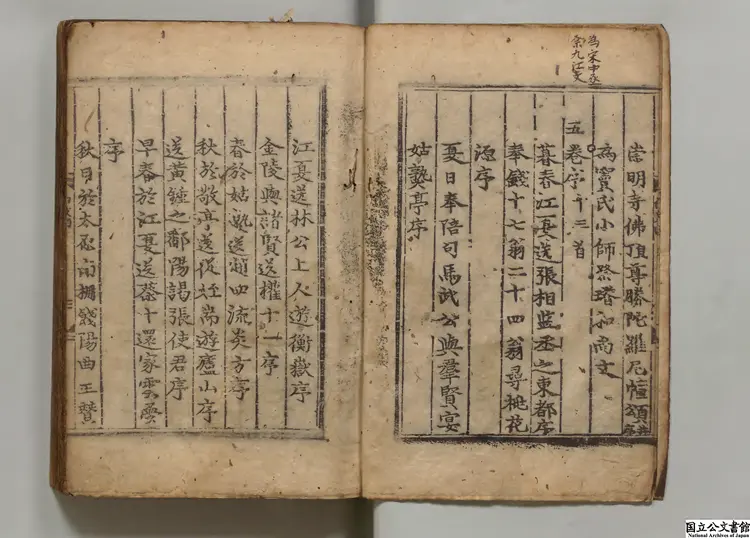 為宋中丞
祭九江文
崇明寺佛頂尊勝陀羅尼幢頌并序
為竇氏小師祭璿和尚文
五卷序十三首
暮春江夏送張祖監丞之東都序
奉餞十七翁二十四翁尋桃花
源序
夏日奉陪司馬武公與羣賢宴
姑熟亭序
江夏送林公上人遊衡嶽序
金陵與諸賢送權十一序
春於姑熟送趙四流炎方序
秋於敬亭送從姪耑游廬山序
送黃鍾之鄱陽謁張使君序
早春於江夏送蔡十還家雲夢
序
秋日於太原南柵餞陽曲王贊
国立公文書館
National Archives of Japan